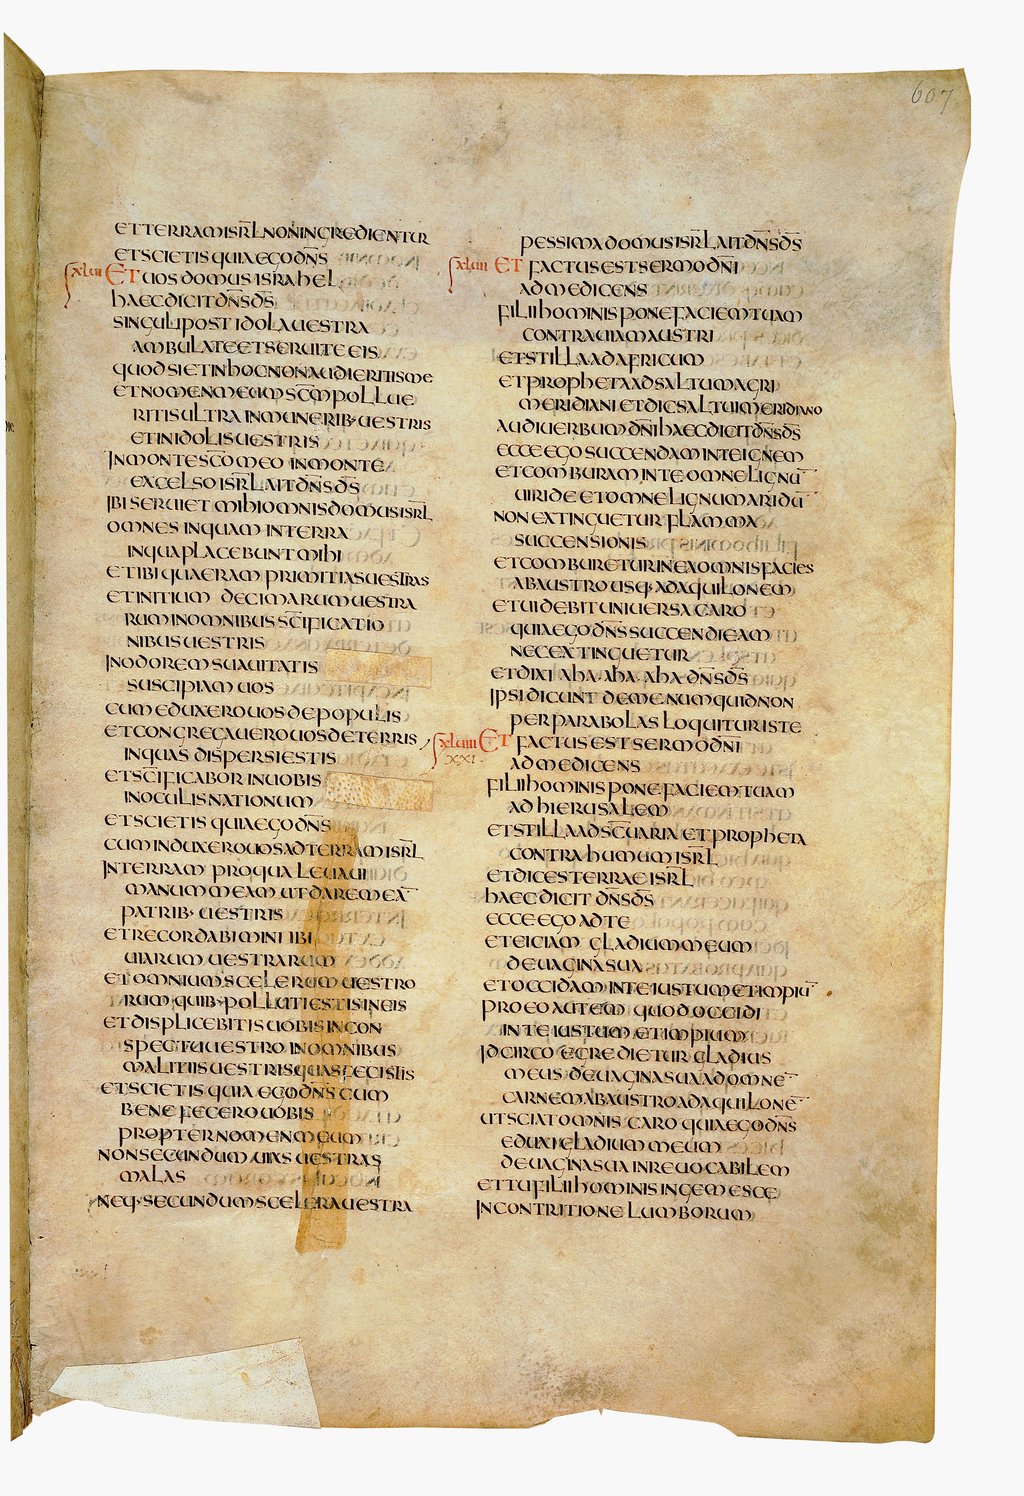 607
ETTERRAMISRL NONINGREDIENTUR
ETSCIETIS QUIAEGODNS
xlvii ET UOS DOMUS ISRAHEL
HAECDICITDNSDS
SINGULI POST IDOLA UESTRA
AMBULATE ETSERUITE EIS
QUODSI ETINHOC NON AUDIERITISME
ET NOMEN MEUM SCM POLLUE
RITIS ULTRA INMUNERIB· UESTRIS
ETINIDOLIS UESTRIS
IN MONTE SCO MEO IN MONTE
EXCELSO ISRL AIT DNSDS
IBI SERUIET MIHI OMNIS DOMUS ISRL
OMNES INQUAM INTERRA
INQUA PLACEBUNT MIHI
ET IBI QUAERAM PRIMITIAS UESTRAS
ET INITIUM DECIMARUM UESTRA
RUM INOMNIBUS SCIFICATIO
NIBUS UESTRIS
IN ODOREM SUAUITATIS
SUSCIPIAM UOS
CUM EDUXERO UOS DE POPULIS
ET CONGREGAUERO UOS DE TERRIS
INQUAS DISPERSI ESTIS
ET SCIFICABOR IN UOBIS
IN OCULIS NATIONUM
ET SCIETIS QUIA EGO DNS
CUM INDUXERO UOS AD TERRAM ISRL
IN TERRAM PRO QUA LEUAUI
MANUM MEAM UT DAREM EA
PATRIB· UESTRIS
ET RECORDABIMINI IBI
UIARUM UESTRARUM
ET OMNIUM SCELERUM UESTRO
RUM QUIB· POLLUTI ESTIS IN EIS
ET DISPLICEBITIS UOBIS IN CON
SPECTU UESTRO IN OMNIBUS
MALITIIS UESTRIS QUAS FECISTIS
ET SCIETIS QUIA EGO DNS CUM
BENE FECERO UOBIS
PROPTER NOMEN MEUM
NON SECUNDUM UIAS UESTRAS
MALAS
NEQ· SECUNDUM SCELERA UESTRA
PESSIMA DOMUS ISRL AIT DNSDS
xlviii ET FACTUS EST SERMO DNI
AD ME DICENS
FILI HOMINIS PONE FACIEM TUAM
CONTRA UIAM AUSTRI
ET STILLA AD AFRICUM
ET PROPHETA AD SALTUM AGRI
MERIDIANI ET DIC SALTUI MERIDIANO
AUDI UERBUM DNI HAEC DICIT DNSDS
ECCE EGO SUCCENDAM IN TE IGNEM
ET COMBURAM IN TE OMNE LIGNU
UIRIDE ET OMNE LIGNUM ARIDU
NON EXTINGUETUR FLAMMA
SUCCENSIONIS
ET COMBURETUR IN EA OMNIS FACIES
AB AUSTRO USQ· AD AQUILONEM
ET UIDEBIT UNIUERSA CARO
QUIA EGO DNS SUCCENDI EAM
NEC EXTINGUETUR
ET DIXI AHA· AHA· AHA DNSDS
IPSI DICUNT DE ME NUMQUID NON
PER PARABOLAS LOQUITUR ISTE
xlviiii ET FACTUS EST SERMO DNI
XXI
AD ME DICENS
FILI HOMINIS PONE FACIEM TUAM
AD HIERUSALEM
ET STILLA AD SCUARIA ET PROPHETA
CONTRA HUMUM ISRL
ET DICES TERRAE ISRL
HAEC DICIT DNSDS
ECCE EGO AD TE
ET EICIAM GLADIUM MEUM
DE UAGINA SUA
ET OCCIDAM IN TE IUSTUM ET IMPIU
PRO EO AUTEM QUOD OCCIDI
IN TE IUSTUM ET IMPIUM
IDCIRCO EGREDIETUR GLADIUS
MEUS DE UAGINA SUA AD OMNE
CARNEM AB AUSTRO AD AQUILONE
UT SCIAT OMNIS CARO QUIA EGO DNS
EDUXI GLADIUM MEUM
DE UAGINA SUA INREUOCABILEM
ET TU FILI HOMINIS INGEMESCE
IN CONTRITIONE LUMBORUM